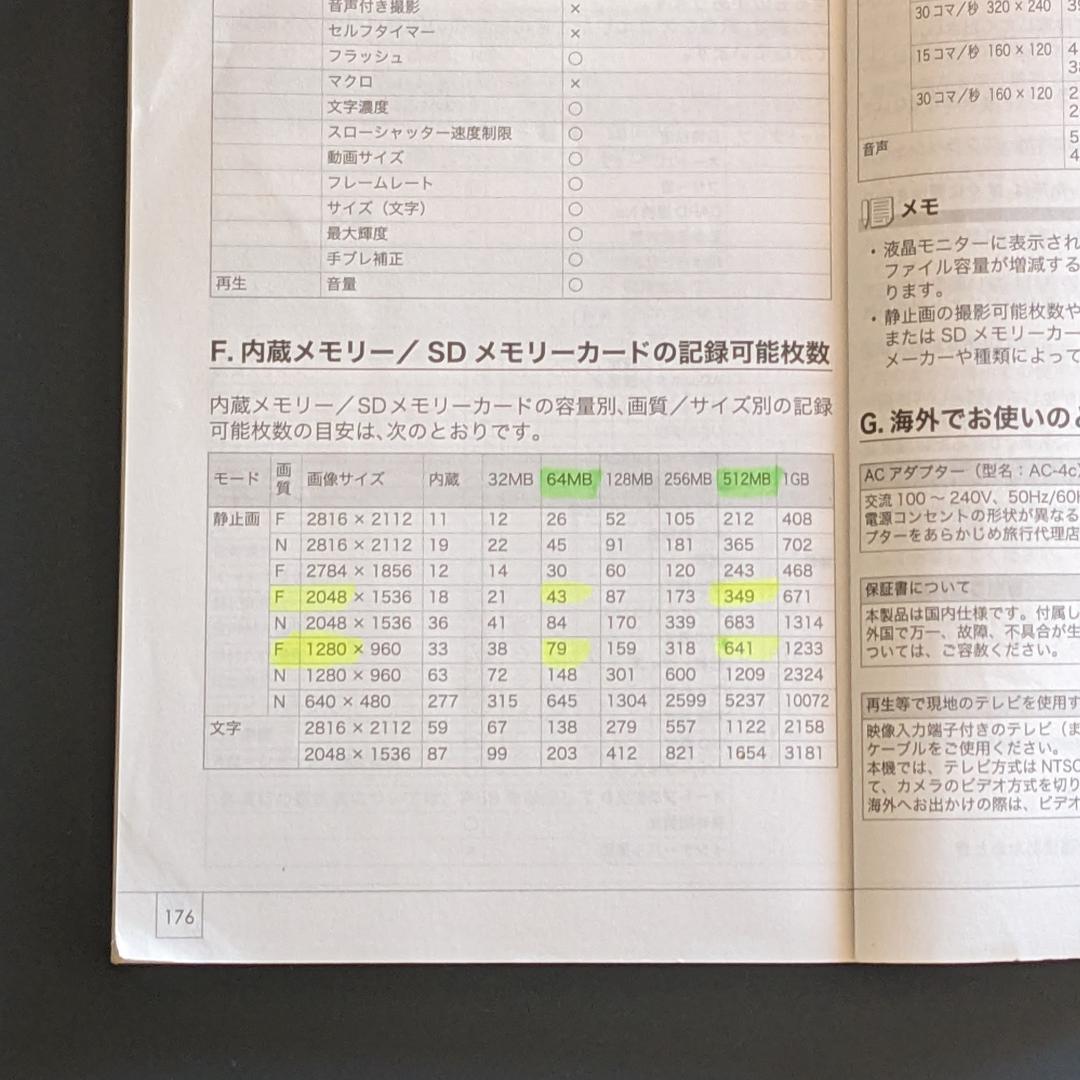 音声付き撮影 ×
セルフタイマー ×
フラッシュ ○
マクロ ×
文字濃度 ○
スローシャッター速度制限 ○
動画サイズ ○
フレームレート ○
サイズ（文字） ○
最大輝度 ○
手ブレ補正 ○
再生 音量 ○
F. 内蔵メモリー／ SD メモリーカードの記録可能枚数
内蔵メモリー／SDメモリーカードの容量別、画質／サイズ別の記録
可能枚数の目安は、次のとおりです。
モード 画質 画像サイズ 内蔵 32MB 64MB 128MB 256MB 512MB 1GB
静止画 F 2816 × 2112 11 12 26 52 105 212 408
N 2816 × 2112 19 22 45 91 181 365 702
F 2784 × 1856 12 14 30 60 120 243 468
F 2048 × 1536 18 21 43 87 173 349 671
N 2048 × 1536 36 41 84 170 339 683 1314
F 1280 × 960 33 38 79 159 318 641 1233
N 1280 × 960 63 72 148 301 600 1209 2324
N 640 × 480 277 315 645 1304 2599 5237 10072
文字 2816 × 2112 59 67 138 279 557 1122 2158
2048 × 1536 87 99 203 412 821 1654 3181
176
30コマ／秒 320 × 240
15コマ／秒 160 × 120
30コマ／秒 160 × 120
音声
メモ
・液晶モニターに表示され
ファイル容量が増減する
ります。
・静止画の撮影可能枚数や
または SD メモリーカー
メーカーや種類によって
G. 海外でお使いの
AC アダプター（型名：AC-4c
交流 100 ～ 240V、50Hz/60H
電源コンセントの形状が異なる
プターをあらかじめ旅行代理店
保証書について
本製品は国内仕様です。付属し
外国で万一、故障、不具合が生
ついては、ご容赦ください。
再生等で現地のテレビを使用す
映像入力端子付きのテレビ（ま
ケーブルをご使用ください。
本機では、テレビ方式は NTSC
て、カメラのビデオ方式を切り
海外へお出かけの際は、ビデオ